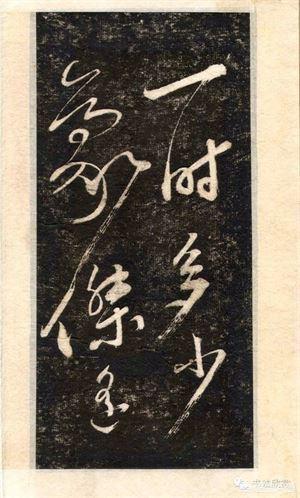 一时多少
豪傑遥
书法欣赏